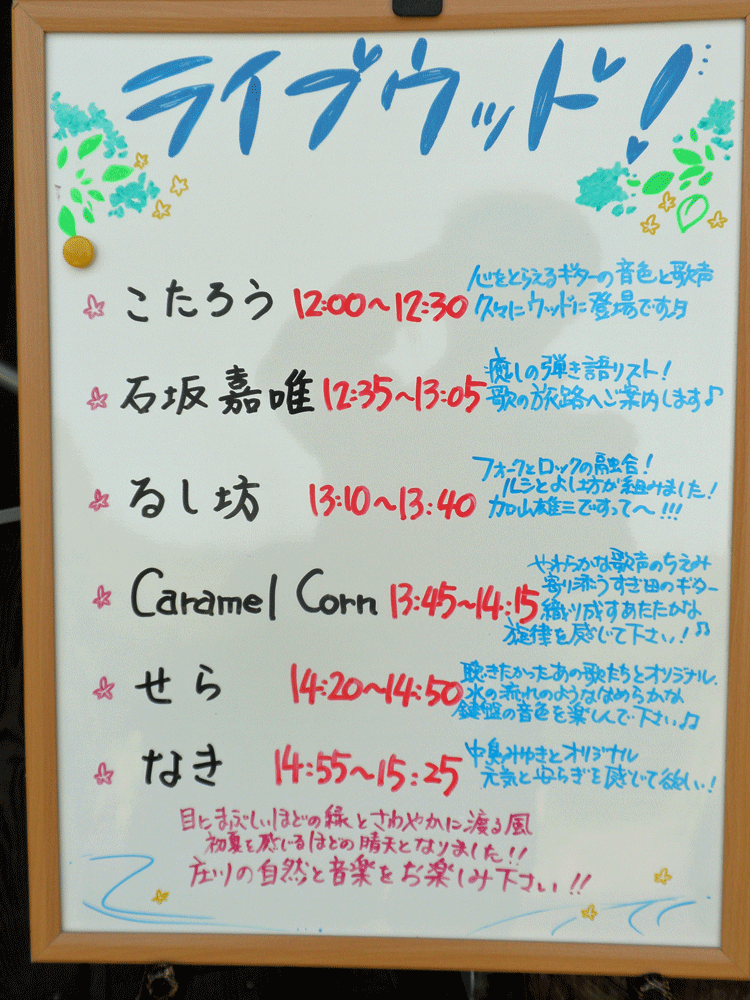 ライブウッド!
こたろう 12:00〜12:30
心をとらえるギターの音色と歌声
久々にウッドに登場です♪
石坂 嘉唯 12:35〜13:05
癒しの弾き語リスト!
歌の旅路へご案内します♪
るし坊 13:10〜13:40
フォークとロックの融合!
ルシとよし坊が組みました!
加山雄三ですってへ!!!
Caramel Corn 13:45〜14:15
やわらかな歌声のちえみ
寄り添うすぎ田のギター
織り成すあたたかな
旋律を感じて下さい!♫
せら 14:20〜14:50
聴きたかったあの歌たちとオリジナル.
水の流れのようななめらかな
鍵盤の音色を楽しんで下さい♫
なき 14:55〜15:25
中島みゆきとオリジナル
元気と安らぎを感じて欲しい!
目にまぶしいほどの緑とさわやかに渡る風
初夏を感じるほどの晴天となりました!!
庄川の自然と音楽をお楽しみ下さい!!